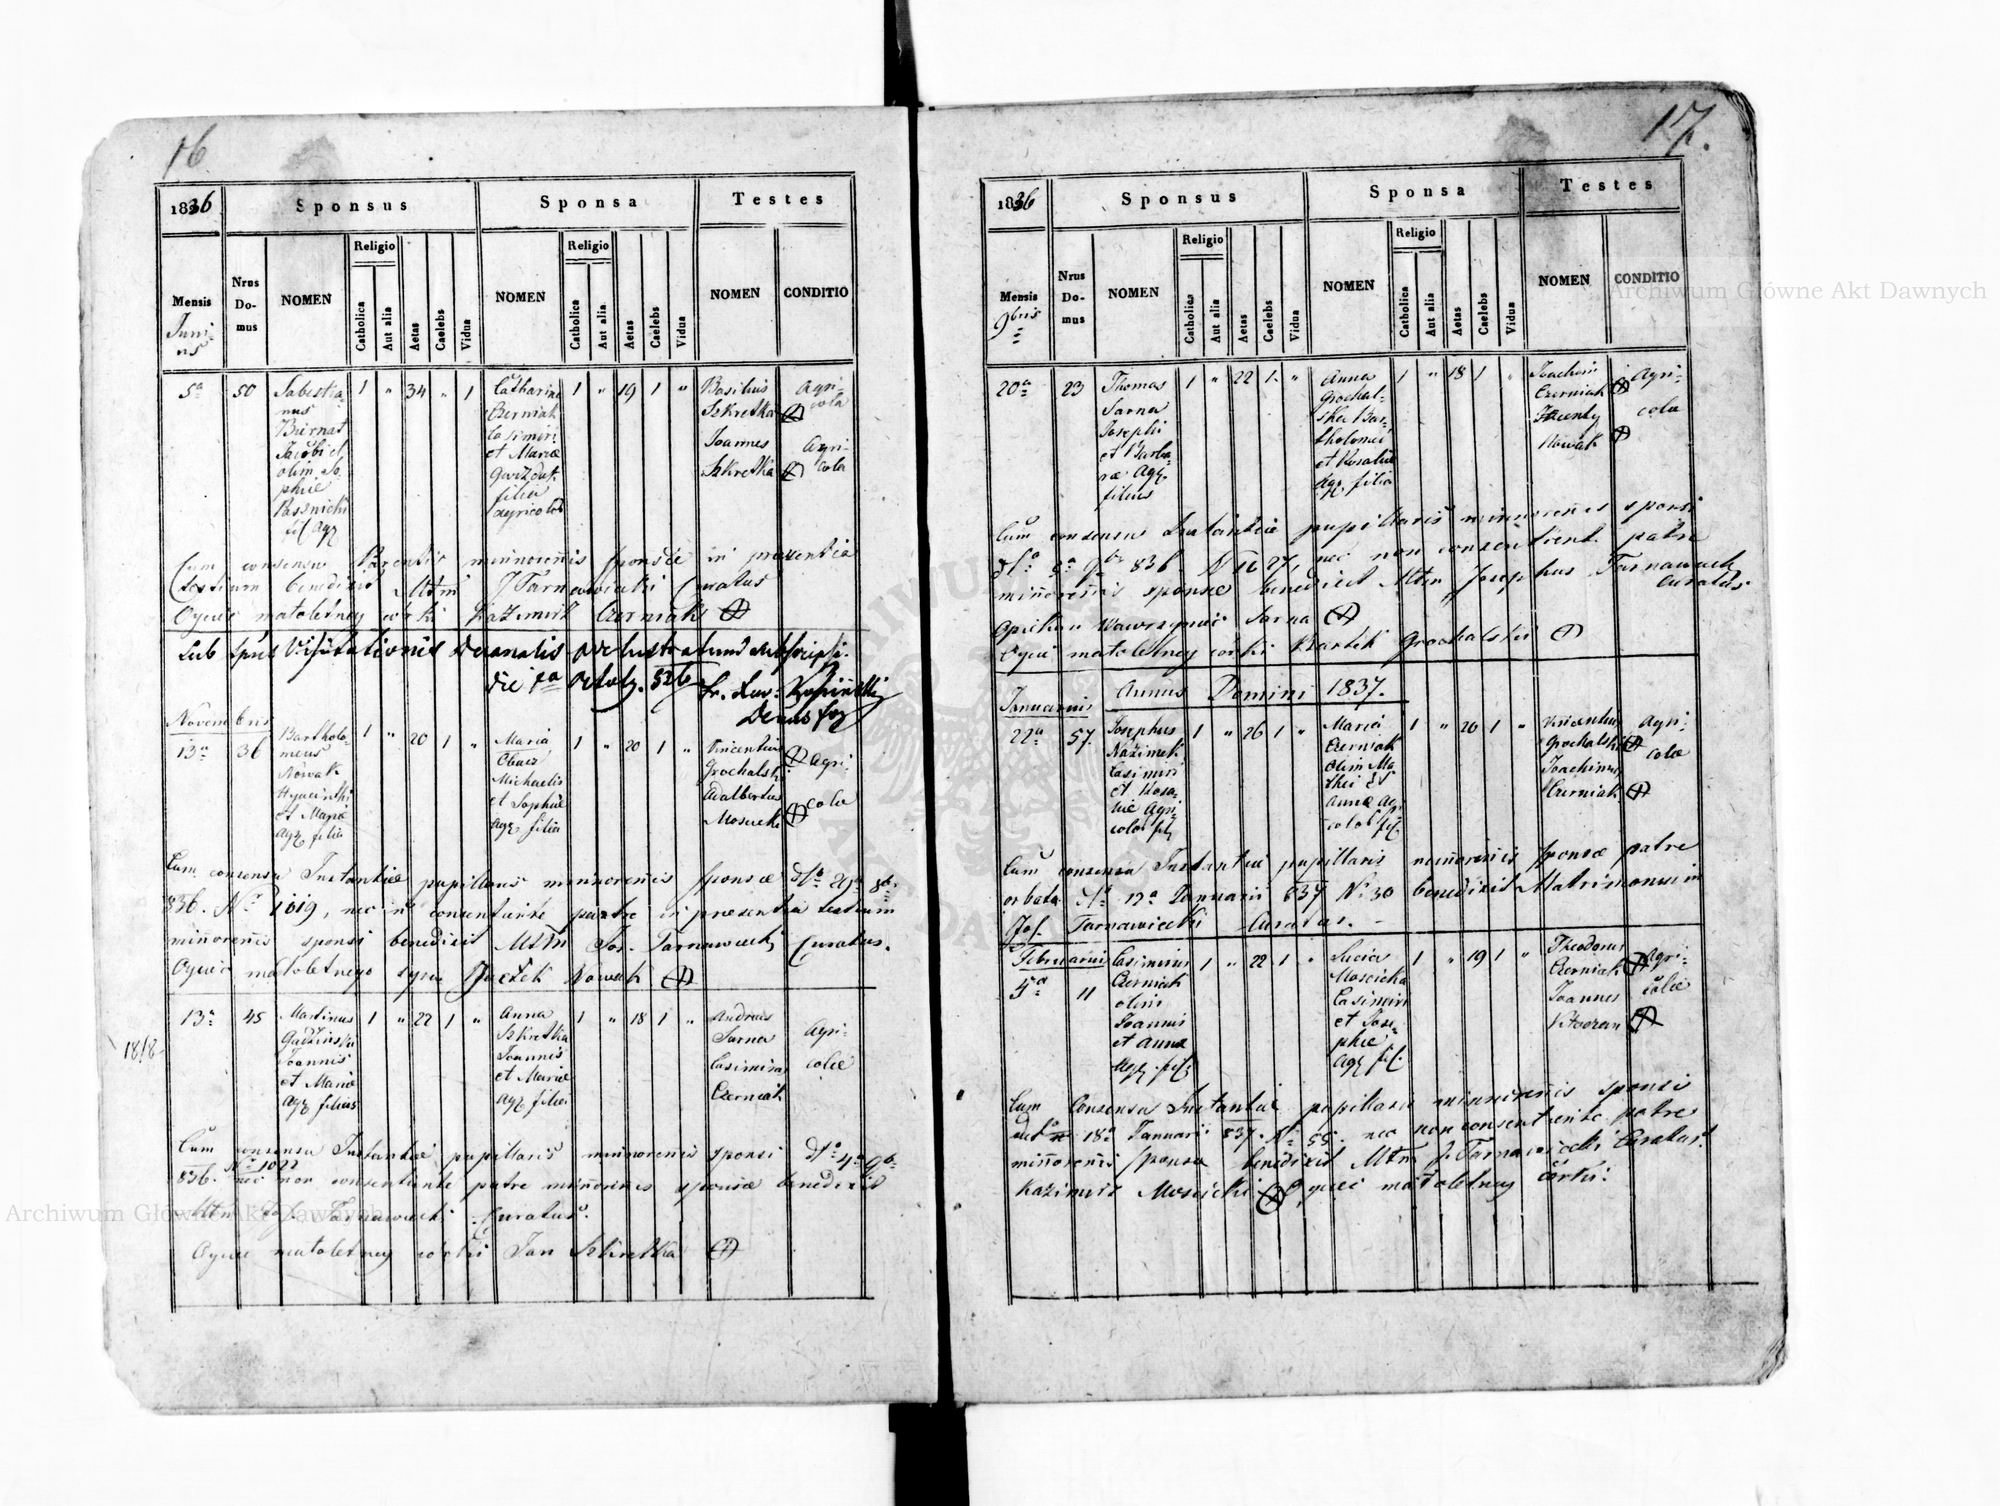 16
1836
Sponsus
Sponsa
Testes
Mensis
Juni
us
Nrus Domus
NOMEN
Religio
Catholica
Aut alia
Aetas
Caelebs
Vidua
NOMEN
Religio
Catholica
Aut alia
Aetas
Caelebs
Vidua
NOMEN
CONDITIO
5a 50
Sabestia-
nus
Biernat
Jacobi et
olim So-
phiæ
fil Agr
1 " 34 " 1
Catharina
Czerniak
Casimiri
et Mariæ
filia
agricolar
1 " 19 1 "
Basilius
Szkretka
Joannes
Szkretka
Agri-
cola
Agri-
cola
Cum consensu Parentis minorenis sponsæ in præsentia
testium benedixit Mtm J Tarnawiecki Curatus
Oyciec małoletney córki Kazimirz Czerniak
Sub tpus Visitationis Decanalis
die Octob. 836
November
13a 36
Bartholo-
meus
Nowak
Hyacinthi
et Mariæ
Agr filius
1 " 20 1 "
Maria
Michaelis
et Sophiæ
Agr filia
1 " 20 1 "
Vincentius
Grochalski
Adalbertus
Moscicki
Agri-
colæ
Cum consensu Instantiæ pupillaris minorenis sponsæ
836. No 1019, nec n consentiente patre in presentia testium
minorenis sponsi benedixit Mtm Jos. Tarnawiecki Curatus.
Oyciec małoletnego syna Jacek Nowak
13a 45
Martinus
Joannis
et Mariæ
Agr filius
1 " 22 1 "
Anna
Szkretka
Joannis
et Mariæ
Agr filia
1 " 18 1 "
Andreas
Sarna
Casimirus
Czerniak
Agri-
colæ
Cum consensu Instantiæ pupillaris minorenis sponsi
No 1022
836. nec non consentiente patre minorenis sponsæ benedixit
Mtm Jos. Tarnawiecki Curatus.
Oyciec małoletney córki Jan Szkretka
17.
1836
Sponsus
Sponsa
Testes
Mensis
9bris
Nrus Domus
NOMEN
Religio
Catholica
Aut alia
Aetas
Caelebs
Vidua
NOMEN
Religio
Catholica
Aut alia
Aetas
Caelebs
Vidua
NOMEN
CONDITIO
20a 23
Thomas
Sarna
Josephi
et Barba-
ræ Agr
filius
1 " 22 1 "
Anna
Grochal-
ska Bar-
tholomei
et Rosaliæ
Agr filia
1 " 18 1 "
Joachim
Czerniak
Nowak
Agri-
colæ
Cum consensu Instantiæ pupillaris minorenis sponsi
836 N 1627, nec non consentient. patre
minorenis sponsæ benedixit Mtm Josephus Tarnawiecki
Curatus
Opiekun Wawrzyniec Sarna
Oyciec małoletney córki Bartek Grochalski
Annus Domini 1837.
Januarius
22a 57.
Josephus
Casimiri
et Rosa-
liæ Agri-
colar fil
1 " 26 1 "
Maria
Czerniak
olim Ma-
thei et
Annæ Ag
colar fil.
1 " 20 1 "
Vincentius
Grochalski
Joachimus
Czerniak
Agri-
colæ
Cum consensu Instantiæ pupillaris minorenis sponsæ patre
orbata 12a Januarii 837 No 30 benedixit Matrimonium
Jos. Tarnawiecki Curatus.
Februarius
5a 11
Casimirus
Czerniak
olim
Joannis
et Annæ
Agr. fil.
1 " 22 1 "
Lucia
Moscicka
Casimiri
et Jose-
phæ
Agr fil.
1 " 19 1 "
Theodorus
Czerniak
Joannes
Agri-
colæ
Cum Consensu Instantiæ pupillaris minorenis sponsi
18a Januarii 837. No 55. nec non consentiente patre
minorenis sponsæ benedixit Mtm J. Tarnawiecki Curatus.
Kazimirz Moscicki Oyciec małoletney córki.
Archiwum Główne Akt Dawnych
Archiwum Główne Akt Dawnych